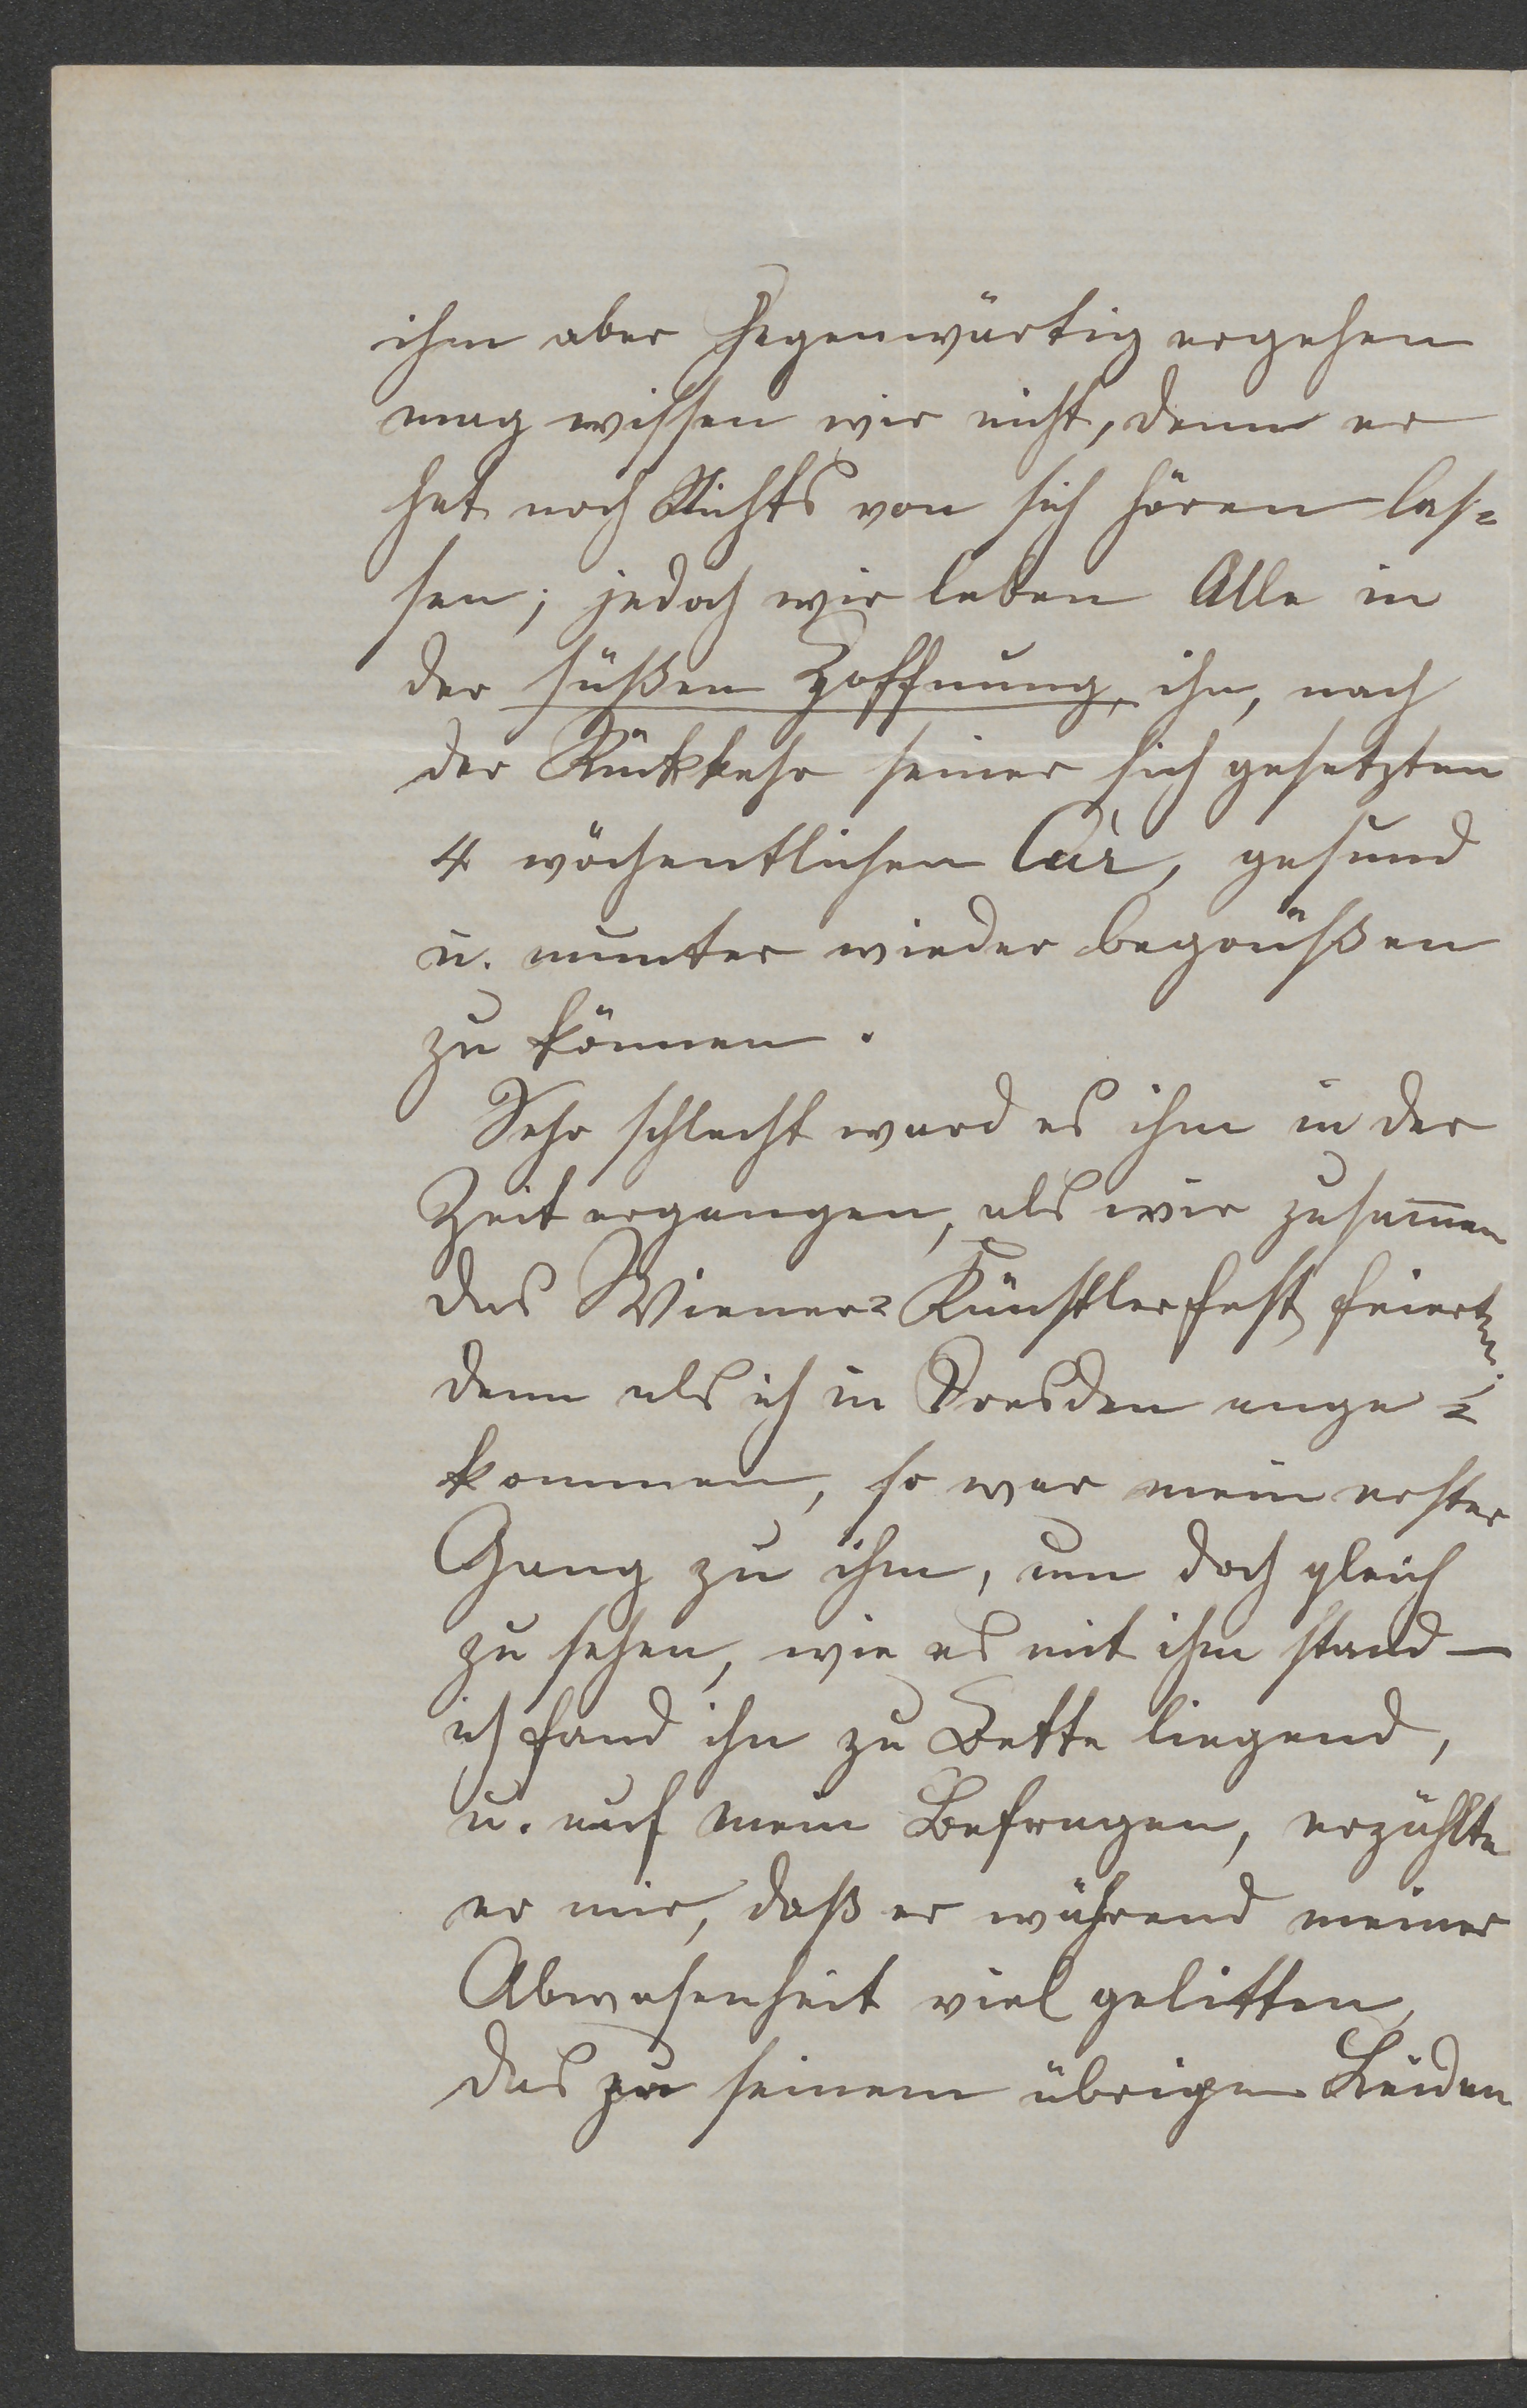 ihm aber gegenwärtig ergehen
mag wissen wir nicht, denn er
hat noch Nichts von sich hören las=
sen; jedoch wir leben Alle in
der süßen Hoffnung, ihn, nach
der Rükkehr seiner sich gesetzten
4 wöchentlichen Cur, gesund
u. munter wieder begrüßen
zu können.
Sehr schlecht ward es ihm in der
Zeit ergangen, als wir zusam̅en
das Wiener=Künstlerfest feierten.
denn als ich in Dresden ange=
kommen, so war mein erster
Gang zu ihm, um doch gleich
zu sehen, wie es mit ihm stand —
ich fand ihn zu Bette liegend,
u. auf mein Befragen, erzählte
er mir, daß er während meiner
Abwesenheit viel gelitten,
das zu seinem übrigen Leiden